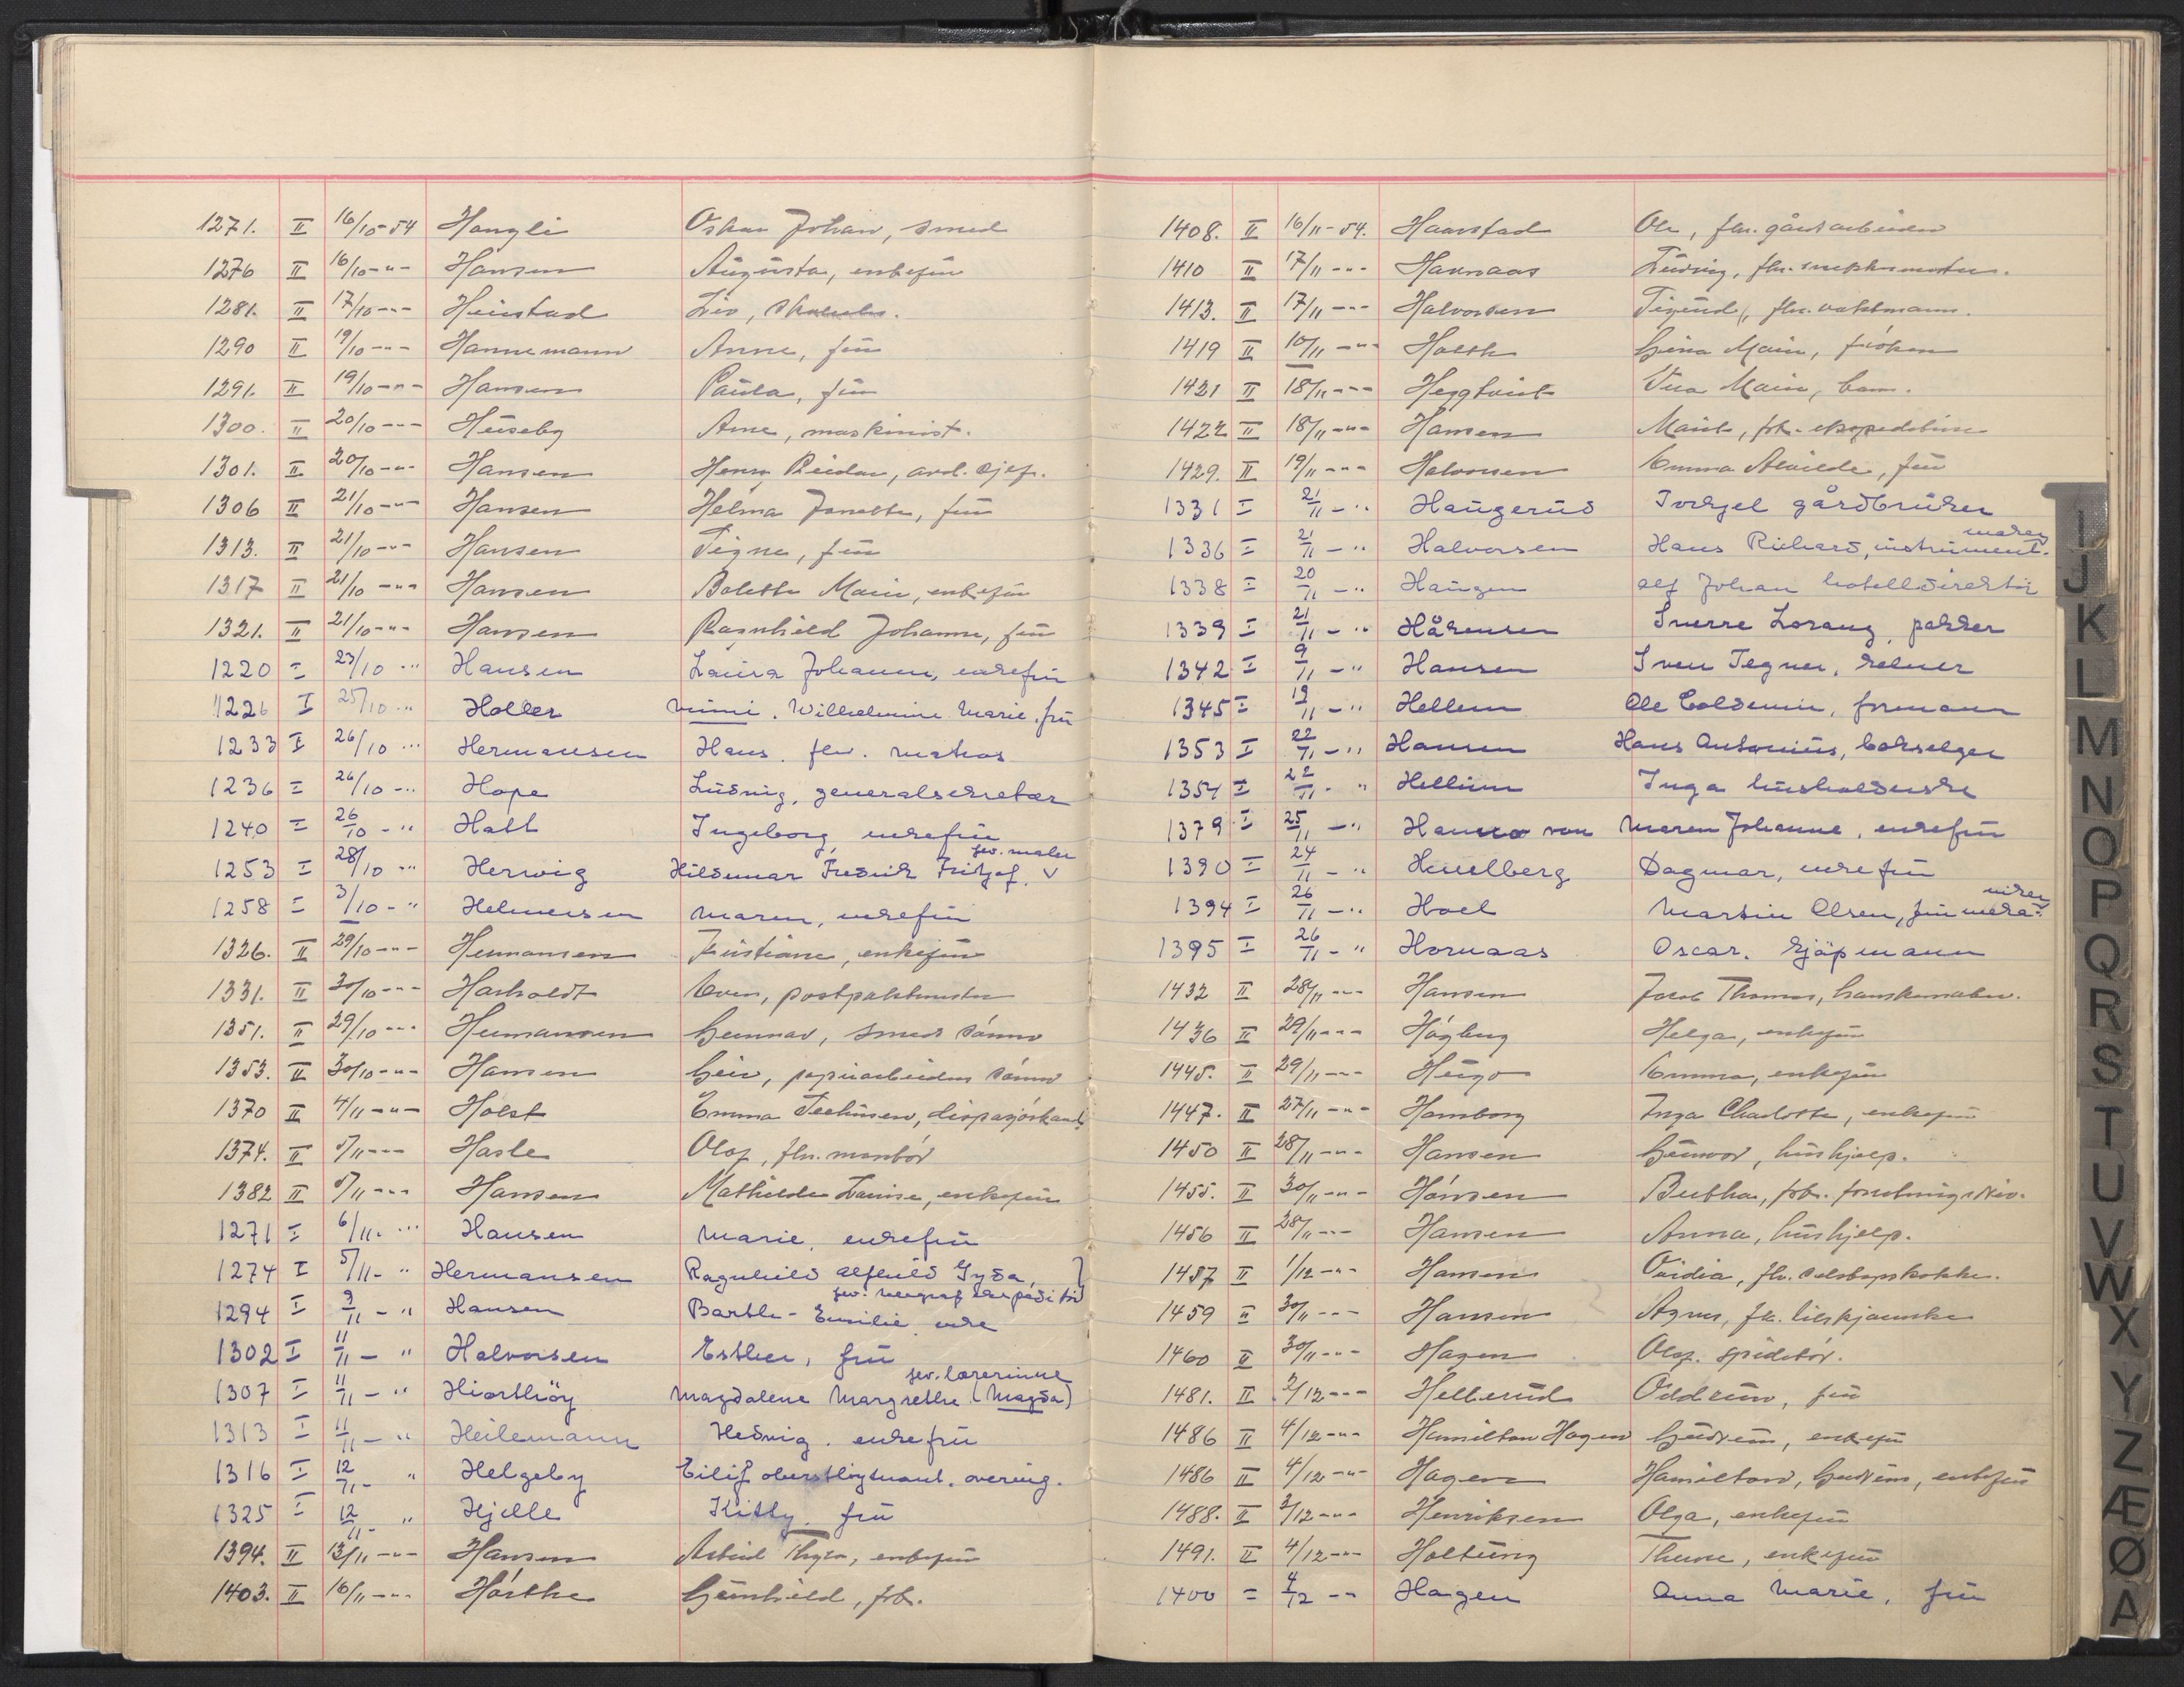 1271. II 16/10-54 Hangli Oskar Johan, smed
1276 II 16/10-"- Hansen Augusta, enkefrü
1281. II 17/10-"- Heistad Liv,
1290 II 19/10-"- Hannemann Anne, frü
1291. II 19/10-"- Hansen Paula, frü
1300. II 20/10-"- Huseby Arne, maskinist.
1301. II 20/10-"- Hansen Henry Reidar, avd. sjef.
1306 II 21/10-"- Hansen Helma Janette, frü
1313. II 21/10-"- Hansen Signe, frü
1317 II 21/10-"- Hansen Bolette Marie, enkefrü
1321. II 21/10-"- Hansen Ragnhild Johanne, frü
1220 I 23/10 -" Hansen Laura Johanne, enkefrü
1226 I 25/10 -" Holler Mimi. Wilhelmine Marie. frü
1233 I 26/10 -" Hermansen Hans. fhv. matros
1236 I 26/10 -" Hope Ludvig, generalsekretær
1240 I 26/10 -" Hall Ingeborg, enkefrü
fhv. maler
1253 I 28/10 -" Herwig Hildemar Fredrik Fridtjof. V
1258 I 3/10 -" Helmersen Maren, enkefrü
1326. II 29/10-"- Hermansen Kristiane, enkefrü
1331. II 30/10-"- Harholdt Even, postpakkmester
1351. II 29/10-"- Hermansen Gunnar, smed sønn
1353. II 30/10-"- Hansen Geir, papirarbeiders sønn
1370 II 4/11-"- Holst Emma
1374. II 5/11-"- Hasle Olaf, fhv. montør
1382 II 5/11-"- Hansen Mathilde Louise, enkefrü
1271 I 6/11. -" Hansen Marie, enkefrü
1274 I 5/11- " Hermansen Ragnhild Alfhild Gyda, }
fhv. telegraf ekspeditør
1294 I 9/11 - " Hansen Barthe-Emilie, enke
1302 I 11/11 - " Halvorsen Esther, frü
fhv. lærerinne
1307 I 11/11 - " Hiorthøy Magdalene Margrethe. (Magda)
1313 I 11/11 - " Heilemann Hedvig. enkefrü
1316 I 12/11- " Helgeby Eilif oberstløytnant. overing.
1325 I 12/11- " Hjelle Kitty. frü
1394. II 13/11-"- Hansen Astrid Thyra, enkefrü
1403. II 16/11-"- Hørthe Gunhild, frk.
1408. II 16/11-54. Haarstad Ole, fhv. gårdarbeider
1410 II 17/11-"- Haavnaas Ludvig,
1413. II 17/11-"- Halvorsen Sigurd, fhv. vaktmann.
1419 II 10/11-"- Holth Gina Marie, frøken
1421 II 18/11-"- Heggtveit Una Marie, barn.
1422 II 18/11-"- Hansen Marit, frk. ekspeditrise
1429. II 19/11-"- Halvorsen Emma Alvilde, frü
1331 I 21/11 - " Haugerud Torkjel gårdbruker
maker
1336 I 21/11 - " Halvorsen Hans Richard, instrument.
1338 I 20/11 - " Haugen Alf Johan hotelldirektør
1339 I 21/11 - " Håkensen Sverre Lorang, pakker
1342 I 9/11 - " Hansen Sven Tegner, kelner
1345 I 19/11 - " Hellem Ole Coldevin, formann
1353 I 22/11 - " Hansen Hans Antonius, bokselger
1354 I 22/11 - " Hellum Inga husholderske
1379 I 25/11 - " Hanno von Maren Johanne, enkefrü
1390 I 24/11 - " Hesselberg Dagmar, enkefrü
niker
1394 I 26/11 - " Hoel Martin Olsen, finmeka-
1395 I 26/11 - " Hornaas Oscar. kjøpmann
1432 II 28/11-"- Hansen Jacob Thomas, hanskemaker.
1436 II 29/11-"- Høgberg Helga, enkefrü
1445. II 29/11-"- Heigo Emma, enkefrü
1447. II 27/11-"- Hamborg Inga Charlotte, enkefrü
1450 II 28/11-"- Hansen Gunvor, hushjelp.
1455. II 30/11-"- Hansen Bertha, frk.
1456 II 28/11-"- Hansen Anna, hushjelp.
1457 II 1/12-"- Hansen Vardia, fhv. selskapskokke.
1459 II 30/11-"- Hansen Agnes,
1460 II 30/11-"- Hagen Olaf. speditør.
1481. II 2/12-"- Hellerud Oddrun, frü
1486 II 4/12-"- Hamilton Hagen Gudrun, enkefrü
1486 II 4/12-"- Hagen Hamilton, Gudrun, enkefrü
1488. II 3/12-"- Henriksen Olga, enkefrü
1491. II 4/12-"- Holtung Thune, enkefrü
1400 = 4/12 -- Hagen Anna Marie, frü
I
J
K
L
M
N
O
P
Q
R
S
T
U
V
W
X
Y
Z
Æ
Ø
A